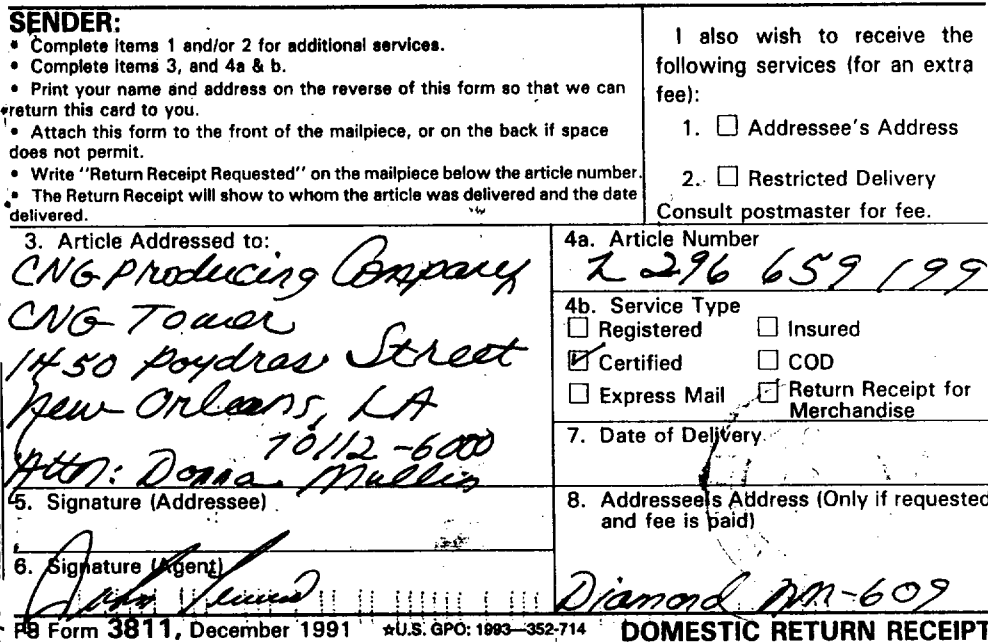 SENDER:
• Complete items 1 and/or 2 for additional services.
• Complete items 3, and 4a & b.
• Print your name and address on the reverse of this form so that we can
return this card to you.
• Attach this form to the front of the mailpiece, or on the back if space
does not permit.
• Write "Return Receipt Requested" on the mailpiece below the article number.
• The Return Receipt will show to whom the article was delivered and the date
delivered.
I also wish to receive the
following services (for an extra
fee):
1. ☐ Addressee's Address
2. ☐ Restricted Delivery
Consult postmaster for fee.
3. Article Addressed to:
CNG Producing Company
CNG Tower
1450 Poydras Street
New Orleans, LA
70112-6000
Attn: Donna Mullis
4a. Article Number
Z 296 659 199
4b. Service Type
☐ Registered ☐ Insured
☑ Certified ☐ COD
☐ Express Mail ☐ Return Receipt for
Merchandise
7. Date of Delivery
5. Signature (Addressee)
8. Addressee's Address (Only if requested
and fee is paid)
6. Signature (Agent)
John
Diamond MM-609
PS Form 3811, December 1991 ☆U.S. GPO: 1993—352-714 DOMESTIC RETURN RECEIPT